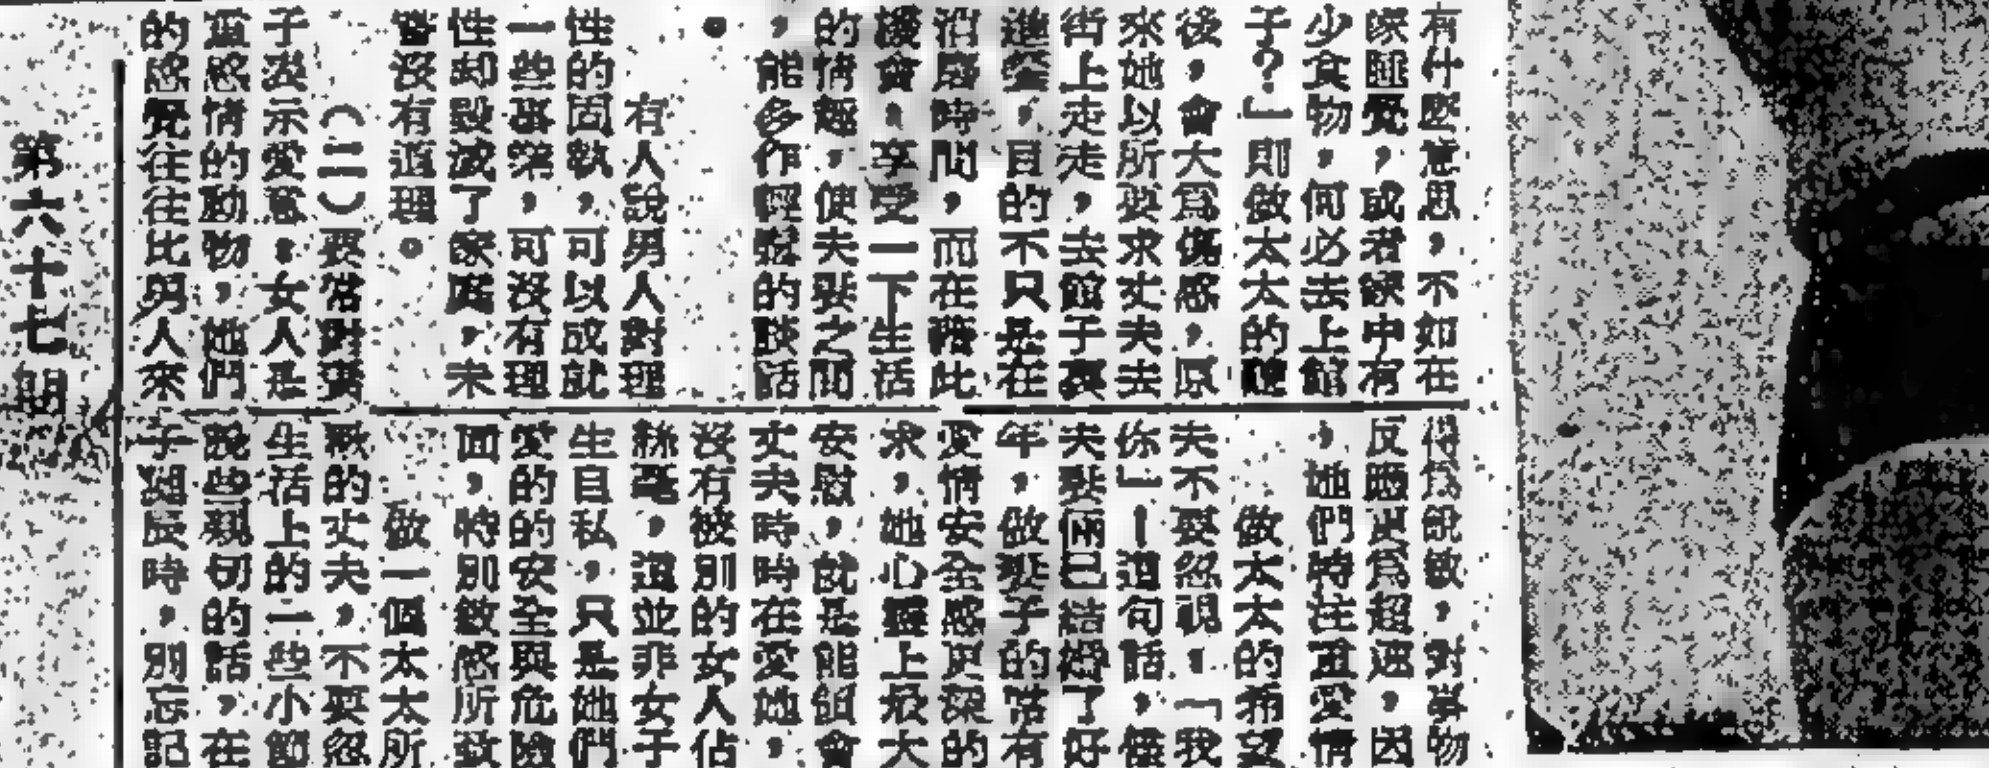 有什麼意思,不如在
家睡覺,或者家中有
少食物,何必去上館
子?」則做太太的
後,會大爲傷感,原
來她以所要求丈夫去
街上走走,去館子裏
進餐,目的不只是在
沿磨時間,而在藉此
機會,享受一下生活
的情趣,使夫妻之間
,能多作輕鬆的談話
。
有人說男人對理
性的固執,可以成就
一些事業,可沒有理
性却毀滅了家庭,未
嘗沒有道理。
(二)要常對妻
子表示愛意,女人是
重感情的動物,她們
的感覺往往比男人來
得爲銳敏,對事物
反應更爲超速,因
,她們特注重愛情
做太太的希望
夫不要忽視,「我
你」—這句話,儘
夫妻倆已結婚了好
年,做妻子的常有
愛情安全感更深的
求,她心靈上最大
安慰,就是能領會
丈夫時時在愛她,
沒有被別的女人佔
絲毫,這並非女子
生自私,只是她們
愛的的安全與危險
面,特別敏感所致
做一個太太所
歡的丈夫,不要忽
生活上的一些小節
說些親切的話,在
子 辰時,別忘記
第六十七期